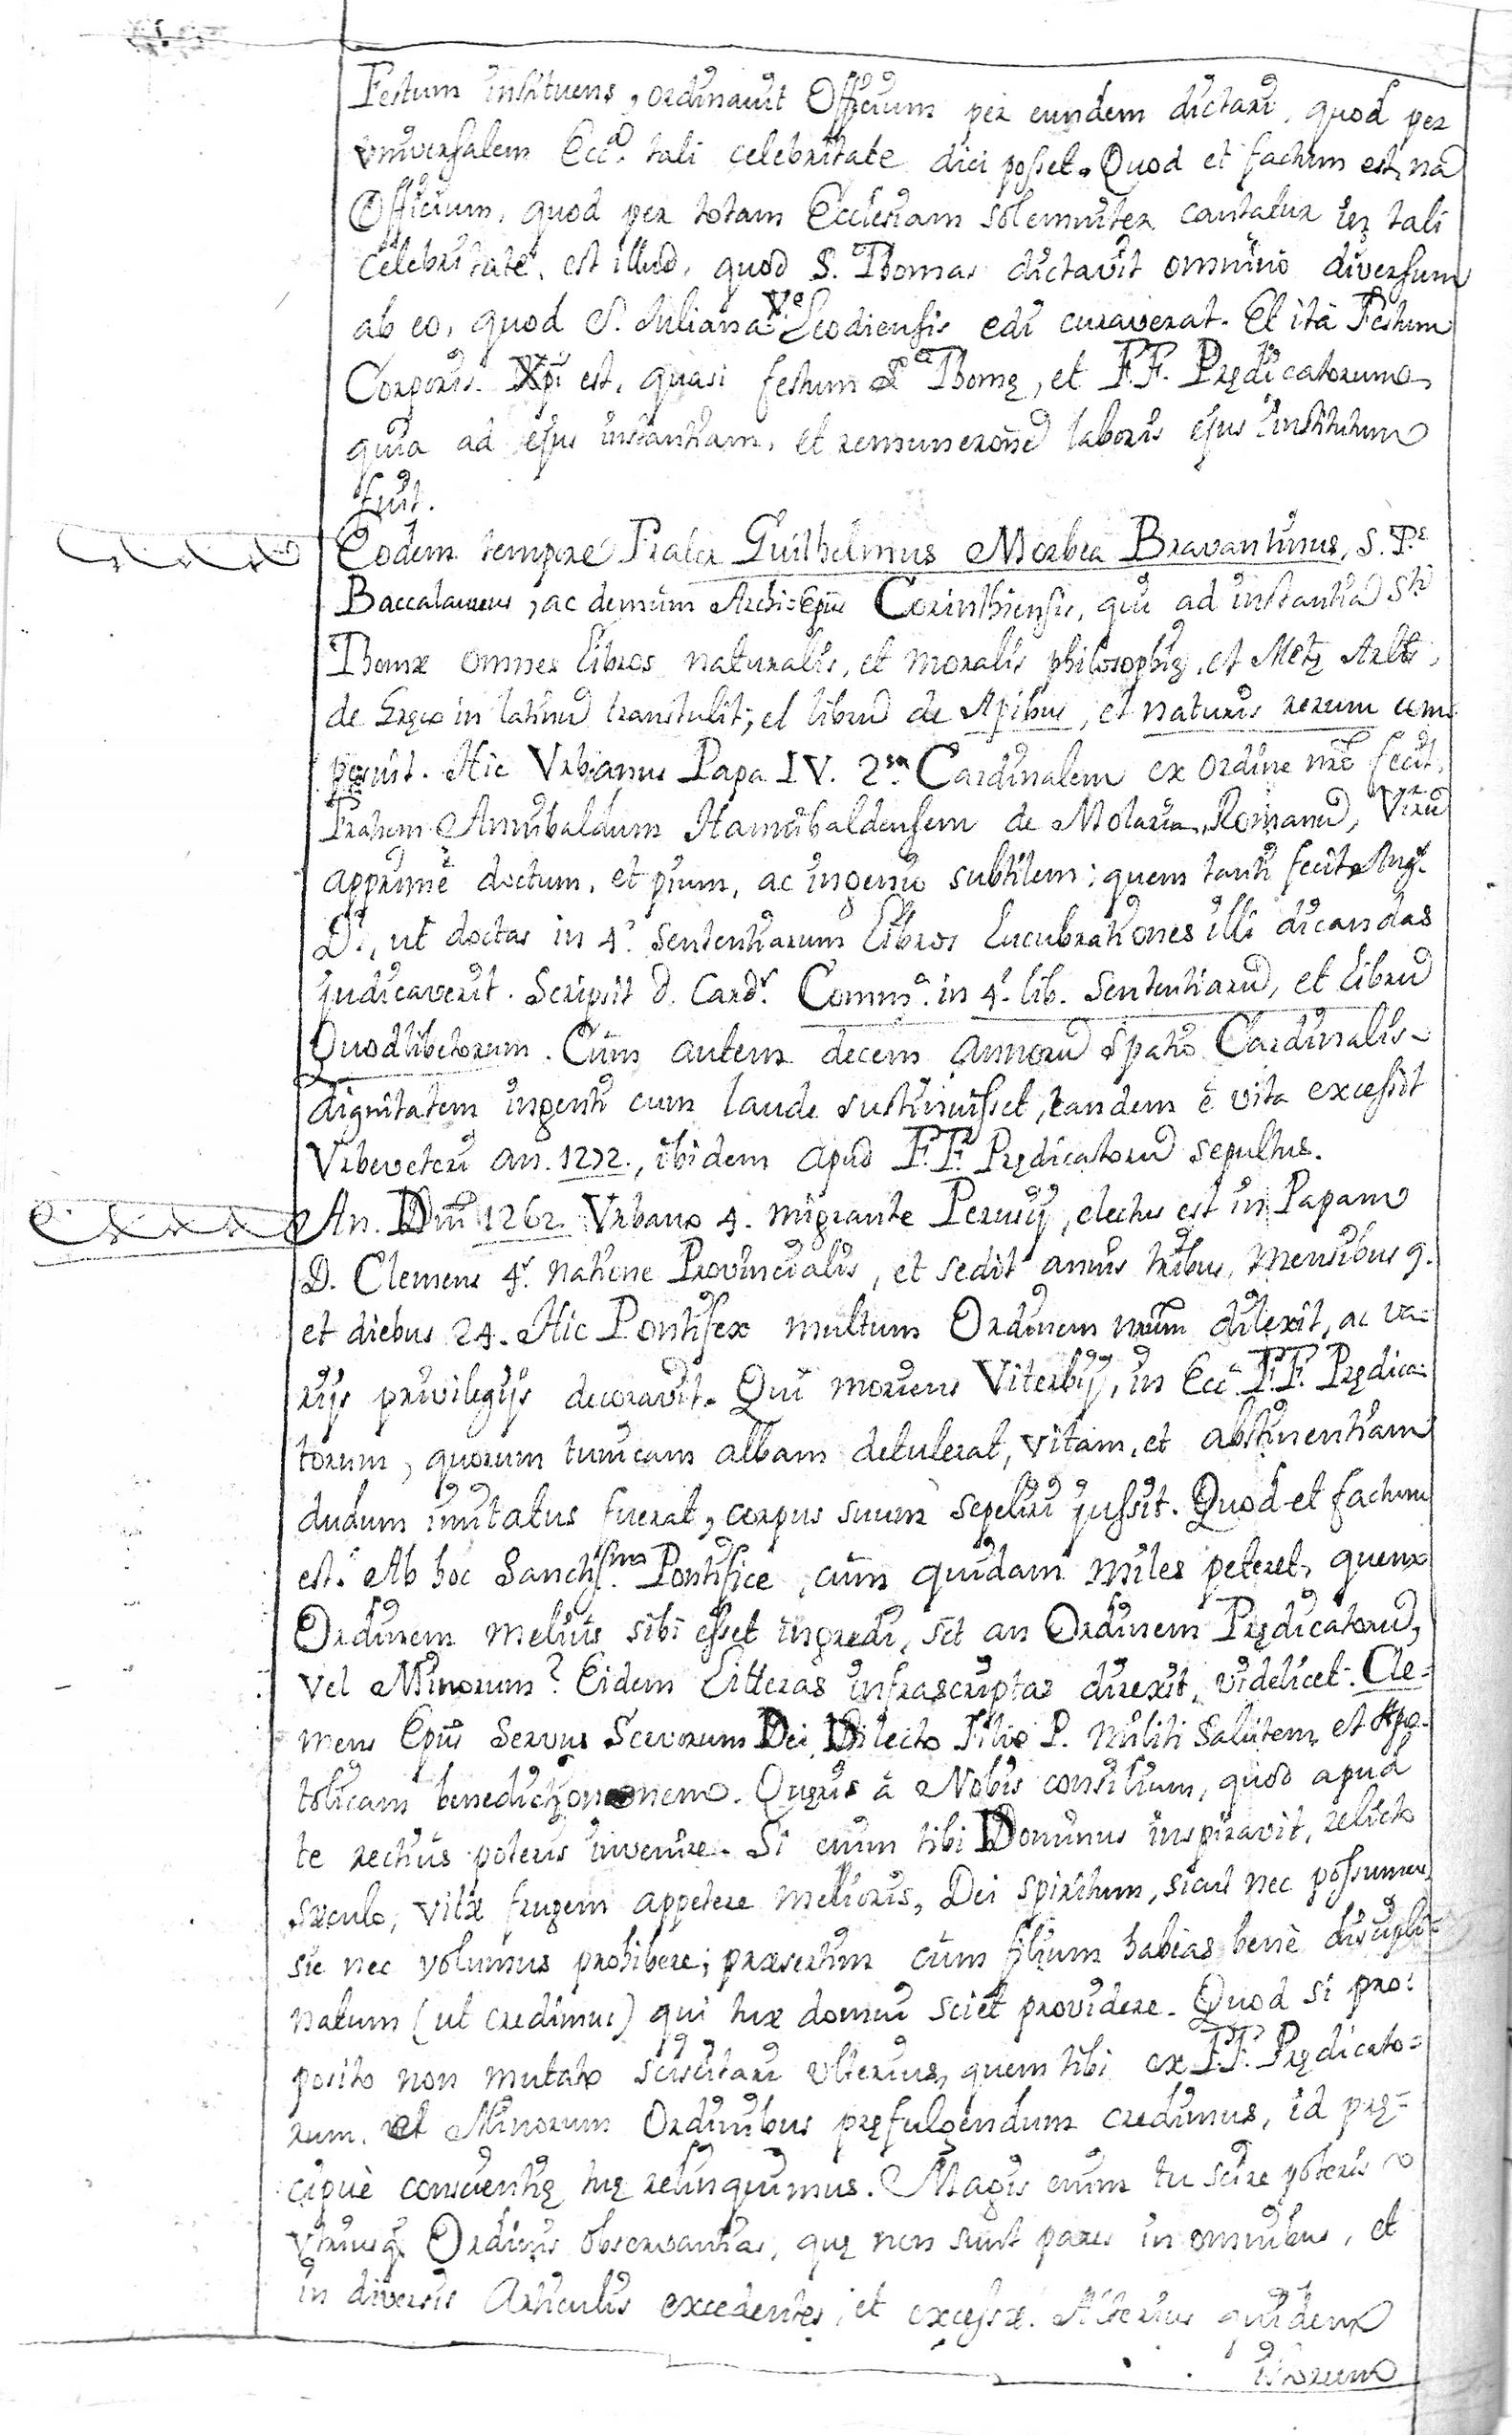 Festum instituens, ordinavit Officium per eundem dictari, quod per
universalem Ecc.ª tali celebritate dici posset. Quod et factum est, nã
Officium, quod per totam Ecclesiam solemniter cantatur in tali
celebritate, est illud, quod S. Thomas dictavit omnino diversum
ab eo, quod S. Juliana Leodiensis edi curaverat. Et ità Festum
Corporis Xpi est, quasi festum Thomę, et F.F. Prędicatorum
quia ad ejus instantiam, et remuneronẽ laboris ejus institutum
fuit.
Eodem tempore Frater Guilhelmus Morbea Bravantinus, S. P.
Baccalaureus, ac demùm Archi-Epũs Corinthiensis, qui ad instantiã S.ti
Thomæ omnes libros naturalis, et moralis philosophię, et Metę Arltis,
de Gręco in latinũ transtulit; et librũ de Apibus, et naturis rerum com
posuit. Hic Urbanus Papa IV. 2.m Cardinalem ex ordine nrõ fecit,
Fratrem Annibaldum Hannibaldensem de Molaria, Romanũ, Virũ
apprimè doctum, et pium, ac ingenio subtilem; quem tanti fecit Ang.
D., ut doctas in 4.r Sententiarum Libros Lucubrationes illi dicandas
judicaverit. Scripsit d. Card. Comm.ª in 4.r lib. Sententiarũ, et librũ
Quodlibetorum. Cùm autem decem annorũ spatio Cardinalis
dignitatem ingenti cum laude sustinuisset, tandem è vita excessit
Urbeveteri an. 1272., ibidem apud F.F. Prędicatorũ sepultus.
An. Dnĩ 1262 Urbano 4. migrante Perusij, electus est in Papam
D. Clemens 4.r natione Provincialis, et sedit annis tribus, mensibus 9.
et diebus 24. Hic Pontifex multum Ordinem nrũm dilexit, ac va-
rijs privilegijs decoravit. Qui moriens Viterbij, in Ecc.ª F.F. Prędica-
torum, quorum tunicam albam detulerat, vitam, et abstinentiam
dudum imitatus fuerat, corpus suum sepeliri jussit. Quod et factum
est. Ab hoc Sanctiss.mo Pontifice, cùm quidam miles peteret, quem
Ordinem meliùs sibi esset ingredi, sit an Ordinem Prędicatorũ,
vel Minorum? Eidem Litteras infrascriptas direxit, videlicet: Cle-
mens Epũs Servus Servorum Dei Dilecto Filio P. Militi Salutem, et Apo-
tolicam benedictionem. Quęris à Nobis consilium, quod apud
te rectiùs poteris invenire. Si enim tibi Dominus inspiravit, relicto
sæculo, vitæ frugem appetere melioris, Dei spiritum, sicut nec possumus
sic nec volumus prohibere; præsertim cùm filium habeas benè discipli-
natum (ut credimus) qui tuæ domui sciet providere. Quod si pro-
posito non mutato sciscitari ulterius, quem tibi ex F.F. Prędicato-
rum, et Minorum Ordinibus pręfulgendum credimus, id prę-
cipuè conscientię tuę relinquimus. Magis enim tu scire poteris
utriusq. Ordinis observantias, quę non sunt pares in omnibus, et
in diversis Articulis excedentes, et excessæ. Alterius quidem
istorum